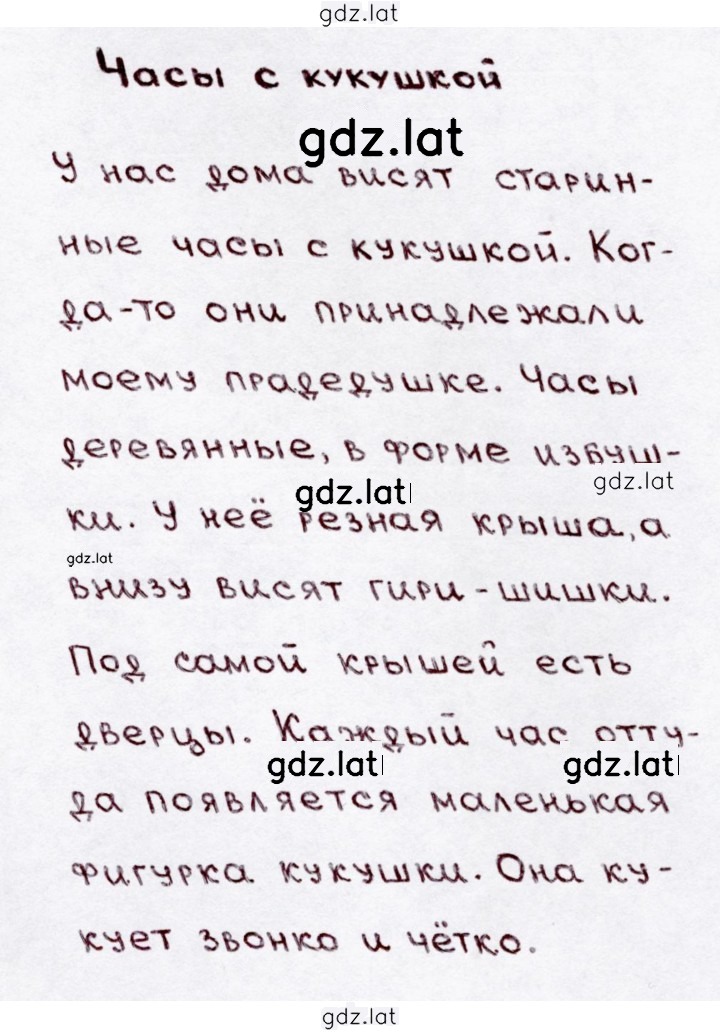 gdz.lat
Часы с кукушкой
gdz.lat
У нас дома висят старин-
ные часы с кукушкой. Ког-
да-то они принадлежали
моему прадедушке. Часы
деревянные, в форме избуш-
gdz.lat
gdz.lat
ки. У неё резная крыша, а
gdz.lat
внизу висят гири-шишки.
Под самой крышей есть
дверцы. Каждый час отту-
gdz.lat gdz.lat
да появляется маленькая
фигурка кукушки. Она ку-
кует звонко и чётко.
gdz.lat